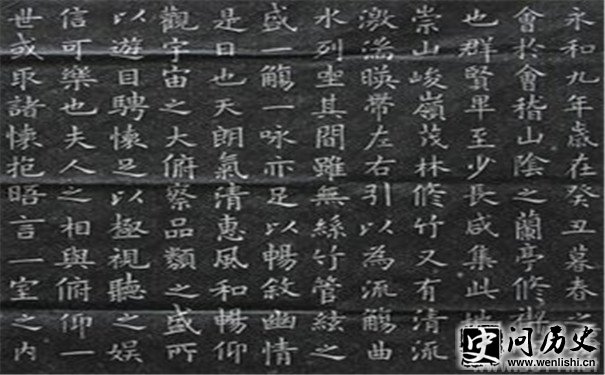 永和九年歲在癸丑暮春之
會於會稽山陰之蘭亭修禊
也群賢畢至少長咸集此地
崇山峻嶺茂林修竹又有清流
激湍暎帶左右引以為流觴曲
水列坐其間雖無絲竹管絃之
盛一觴一咏亦足以暢敘幽情
是日也天朗氣清惠風和暢仰
觀宇宙之大俯察品類之盛所
以遊目騁懷足以極視聽之娛
信可樂也夫人之相與俯仰一
世或取諸懷抱晤言一室之內
史 问历史
www.wenlishi.cn